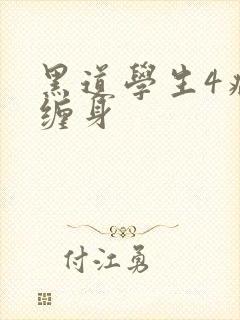 黑道學生4
缠身
付江勇